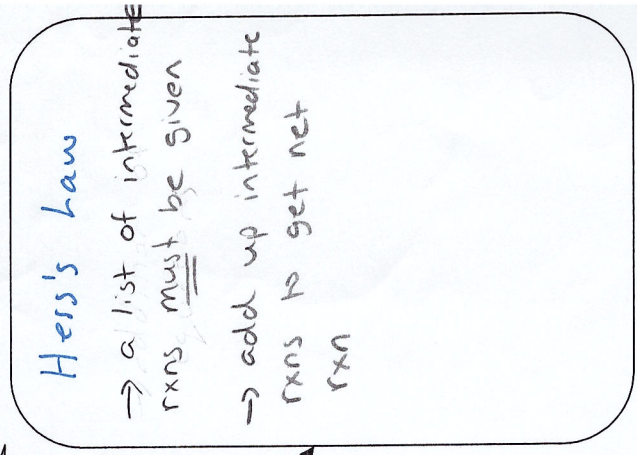 Hess's Law
→ a list of intermediate
rxns must be given
→ add up intermediate
rxns to get net
rxn